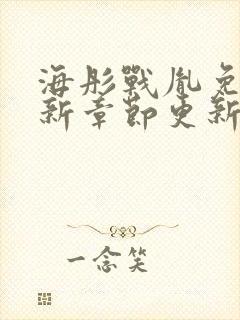 海彤戰胤免
新章節更新
一念笑